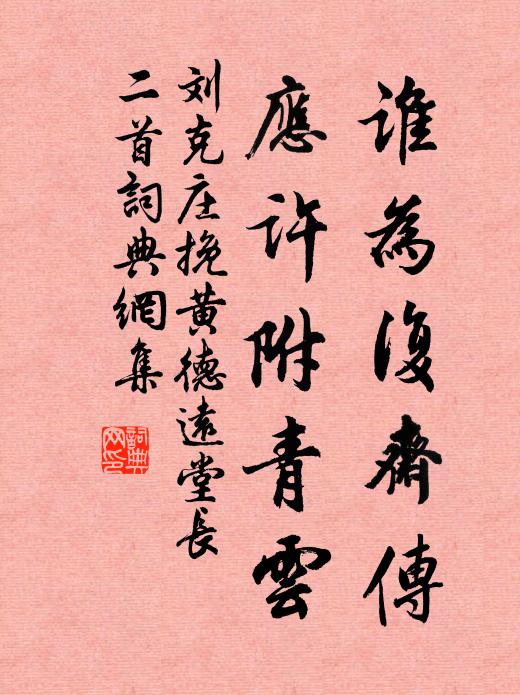 誰為復齋傳
應許附青雲
刘克庄挽黄德遠堂長
二首詞典網集
詞典网印